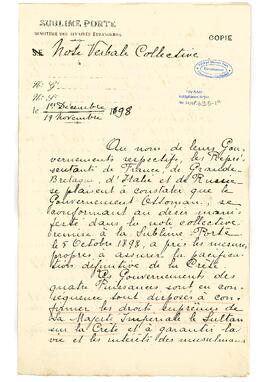 SUBLIME PORTE
MINISTÈRE DES AFFAIRES ÉTRANGÈRES
COPIE
Note Verbale Collective
N: G
N: S
le 1er Décembre / 19 Novembre 1898
Au nom de leurs Gou-
vernements respectifs, les Repré-
sentants de France, de Grande-
Bretagne, d'Italie et de Russie
se plaisent à constater que le
Gouvernement Ottoman, se
conformant au désir mani-
festé dans la note collective
remise à la Sublime Porte
le 5 Octobre 1898, a pris les mesures
propres à assurer la pacifica-
tion définitive de la Crète.
Les Gouvernements des
quatre Puissances sont en con-
séquence sont disposés à con-
firmer les droits suprêmes de
Sa Majesté Impériale le Sultan
sur la Crète et à garantir la
vie et les intérêts des musulmans